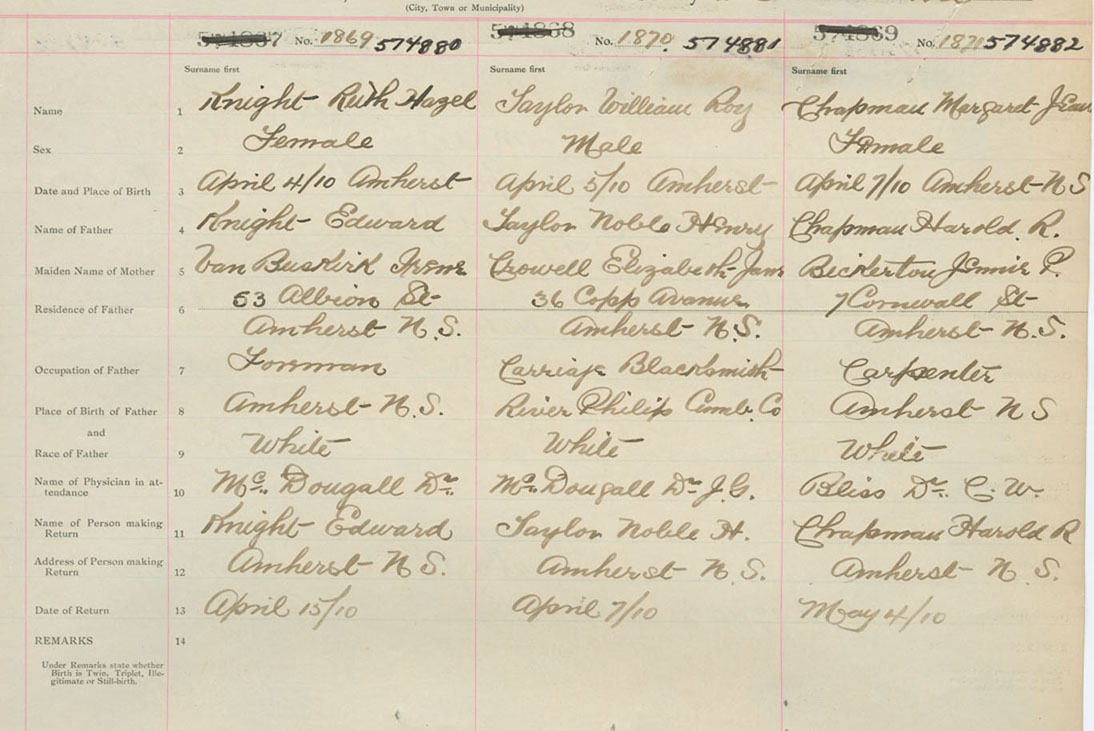 (City, Town or Municipality)
No. 1869 574880 No. 1870. 574881 No. 1871 574882
Surname first Surname first Surname first
Name 1 Knight Ruth Hazel Taylor William Roy Chapman Margaret Jean
Sex 2 Female Male Female
Date and Place of Birth 3 April 4/10 Amherst April 5/10 Amherst April 7/10 Amherst N S
Name of Father 4 Knight Edward Taylor Noble Henry Chapman Harold. R.
Maiden Name of Mother 5 Van Buskirk Irene Crowell Elizabeth Jane Bickerton Jennie P.
Residence of Father 6 53 Albion St 36 Copp Avenue 7 Cornwall St
Amherst N.S. Amherst N.S. Amherst N.S.
Occupation of Father 7 Forman Carriage Blacksmith Carpenter
Place of Birth of Father 8 Amherst N.S. River Philip Cumb. Co Amherst N S
and
Race of Father 9 White White White
Name of Physician in at-
tendance 10 Mc. Dougall Dr. Mc. Dougall Dr. J.G. Bliss Dr. C. W.
Name of Person making
Return 11 Knight Edward Taylor Noble H. Chapman Harold R
Address of Person making
Return 12 Amherst N S. Amherst N.S. Amherst N.S.
Date of Return 13 April 15/10 April 7/10 May 4/10
REMARKS 14
Under Remarks state whether
Birth is Twin, Triplet, Ille-
gitimate or Still-birth.